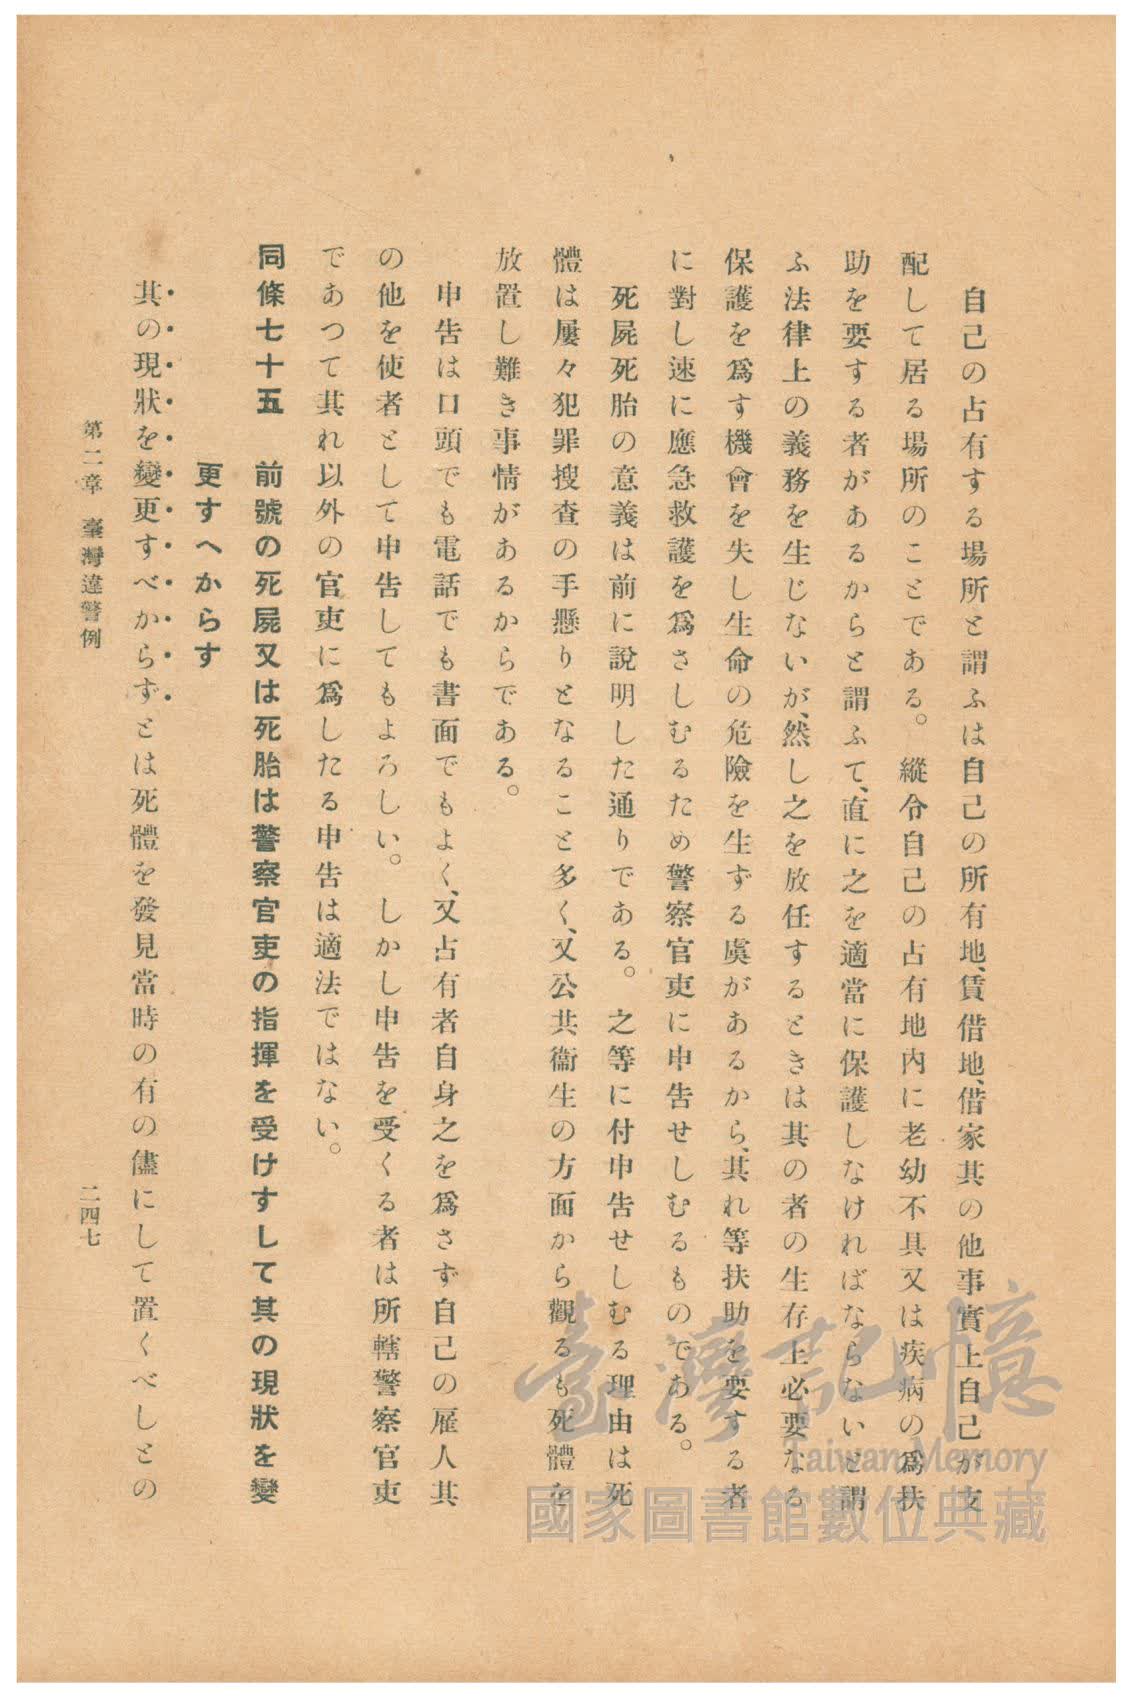 自己の占有する場所と謂ふは自己の所有地、賃借地、借家其の他事實上自己が支
配して居る場所のことである。縱令自己の占有地內に老幼不具又は疾病の爲扶
助を要する者があるからと謂ふて、直に之を適當に保護しなければならないと謂
ふ法律上の義務を生じないが、然し之を放任するときは其の者の生存上必要なる
保護を爲す機會を失し生命の危險を生ずる虞があるから、其れ等扶助を要する者
に對し速に應急救護を爲さしむるため警察官吏に申告せしむるものである。
死屍死胎の意義は前に說明した通りである。之等に付申告せしむる理由は死
體は屢々犯罪搜查の手懸りとなること多く、又公共衞生の方面から觀るも死體を
放置し難き事情があるからである。
申告は口頭でも電話でも書面でもよく、又占有者自身之を爲さず自己の雇人其
の他を使者として申告してもよろしい。しかし申告を受くる者は所轄警察官吏
であつて其れ以外の官吏に爲したる申告は適法ではない。
同條七十五　前號の死屍又は死胎は警察官吏の指揮を受けすして其の現狀を變
更すへからす
其の現狀を變更すべからずとは死體を發見當時の有の儘にして置くべしとの
第二章　臺灣違警例
二四七
臺灣記憶
Taiwan Memory
國家圖書館數位典藏